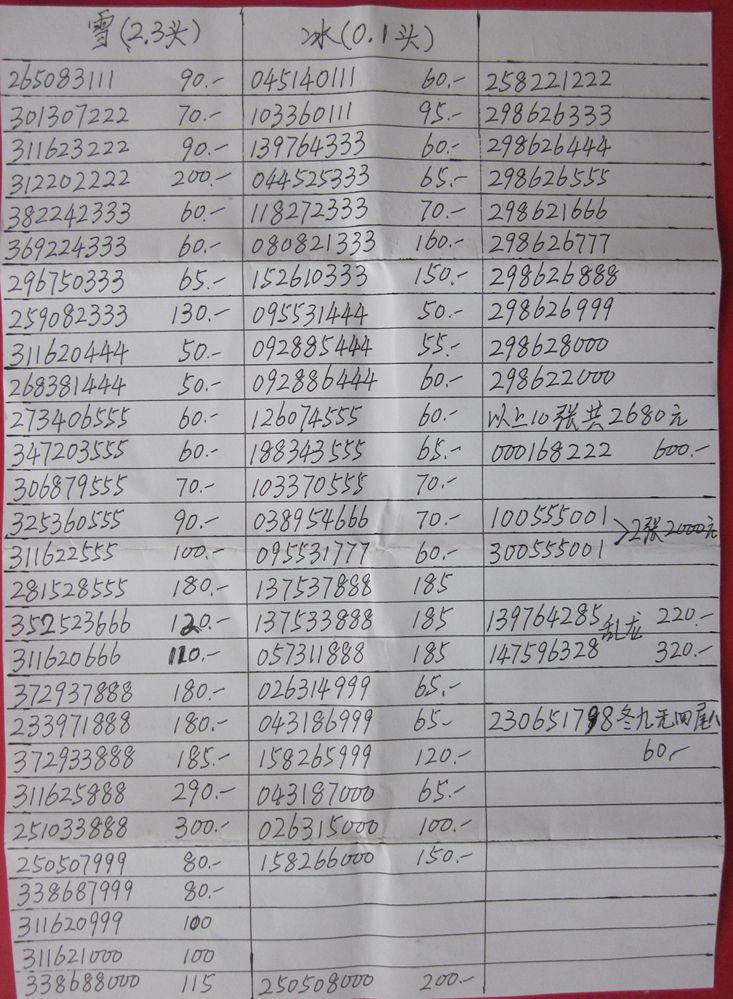 雪(2.3头) 冰(0.1头)
265083111 90.- 045140111 60.- 258221222
301307222 70.- 103360111 95.- 298626333
311623222 90.- 139764333 60.- 298626444
312202222 200.- 044525333 65.- 298626555
382242333 60.- 118272333 70.- 298621666
369224333 60.- 080821333 160.- 298626777
296750333 65.- 152610333 150.- 298626888
259082333 130.- 095531444 50.- 298626999
311620444 50.- 092885444 55.- 298628000
268381444 50.- 092886444 60.- 298622000
273406555 60.- 126074555 60.- 以上10张共2680元
347203555 60.- 188343555 65.- 000168222 600.-
306879555 70.- 103370555 70.-
325360555 90.- 038954666 70.- 100555001 >2张2000元
311622555 100.- 095531777 60.- 300555001
281528555 180.- 137537888 185
352523666 120.- 137533888 185 139764285 乱龙 220.-
311620666 110.- 057311888 185 147596328 320.-
372937888 180.- 026314999 65.-
233971888 180.- 043186999 65- 230651798 冬九无四尾八
372933888 185.- 158265999 120.- 60.-
311625888 290.- 043187000 65.-
251033888 300.- 026315000 100.-
250507999 80.- 158266000 150.-
338687999 80.-
311620999 100
311621000 100
338688000 115 250508000 200.-